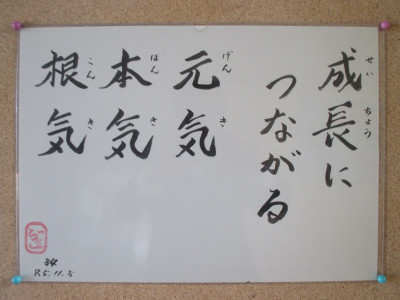 成長に
せいちょう
つながる
元気
げんき
本気
ほんき
根気
こんき
R5.11.8